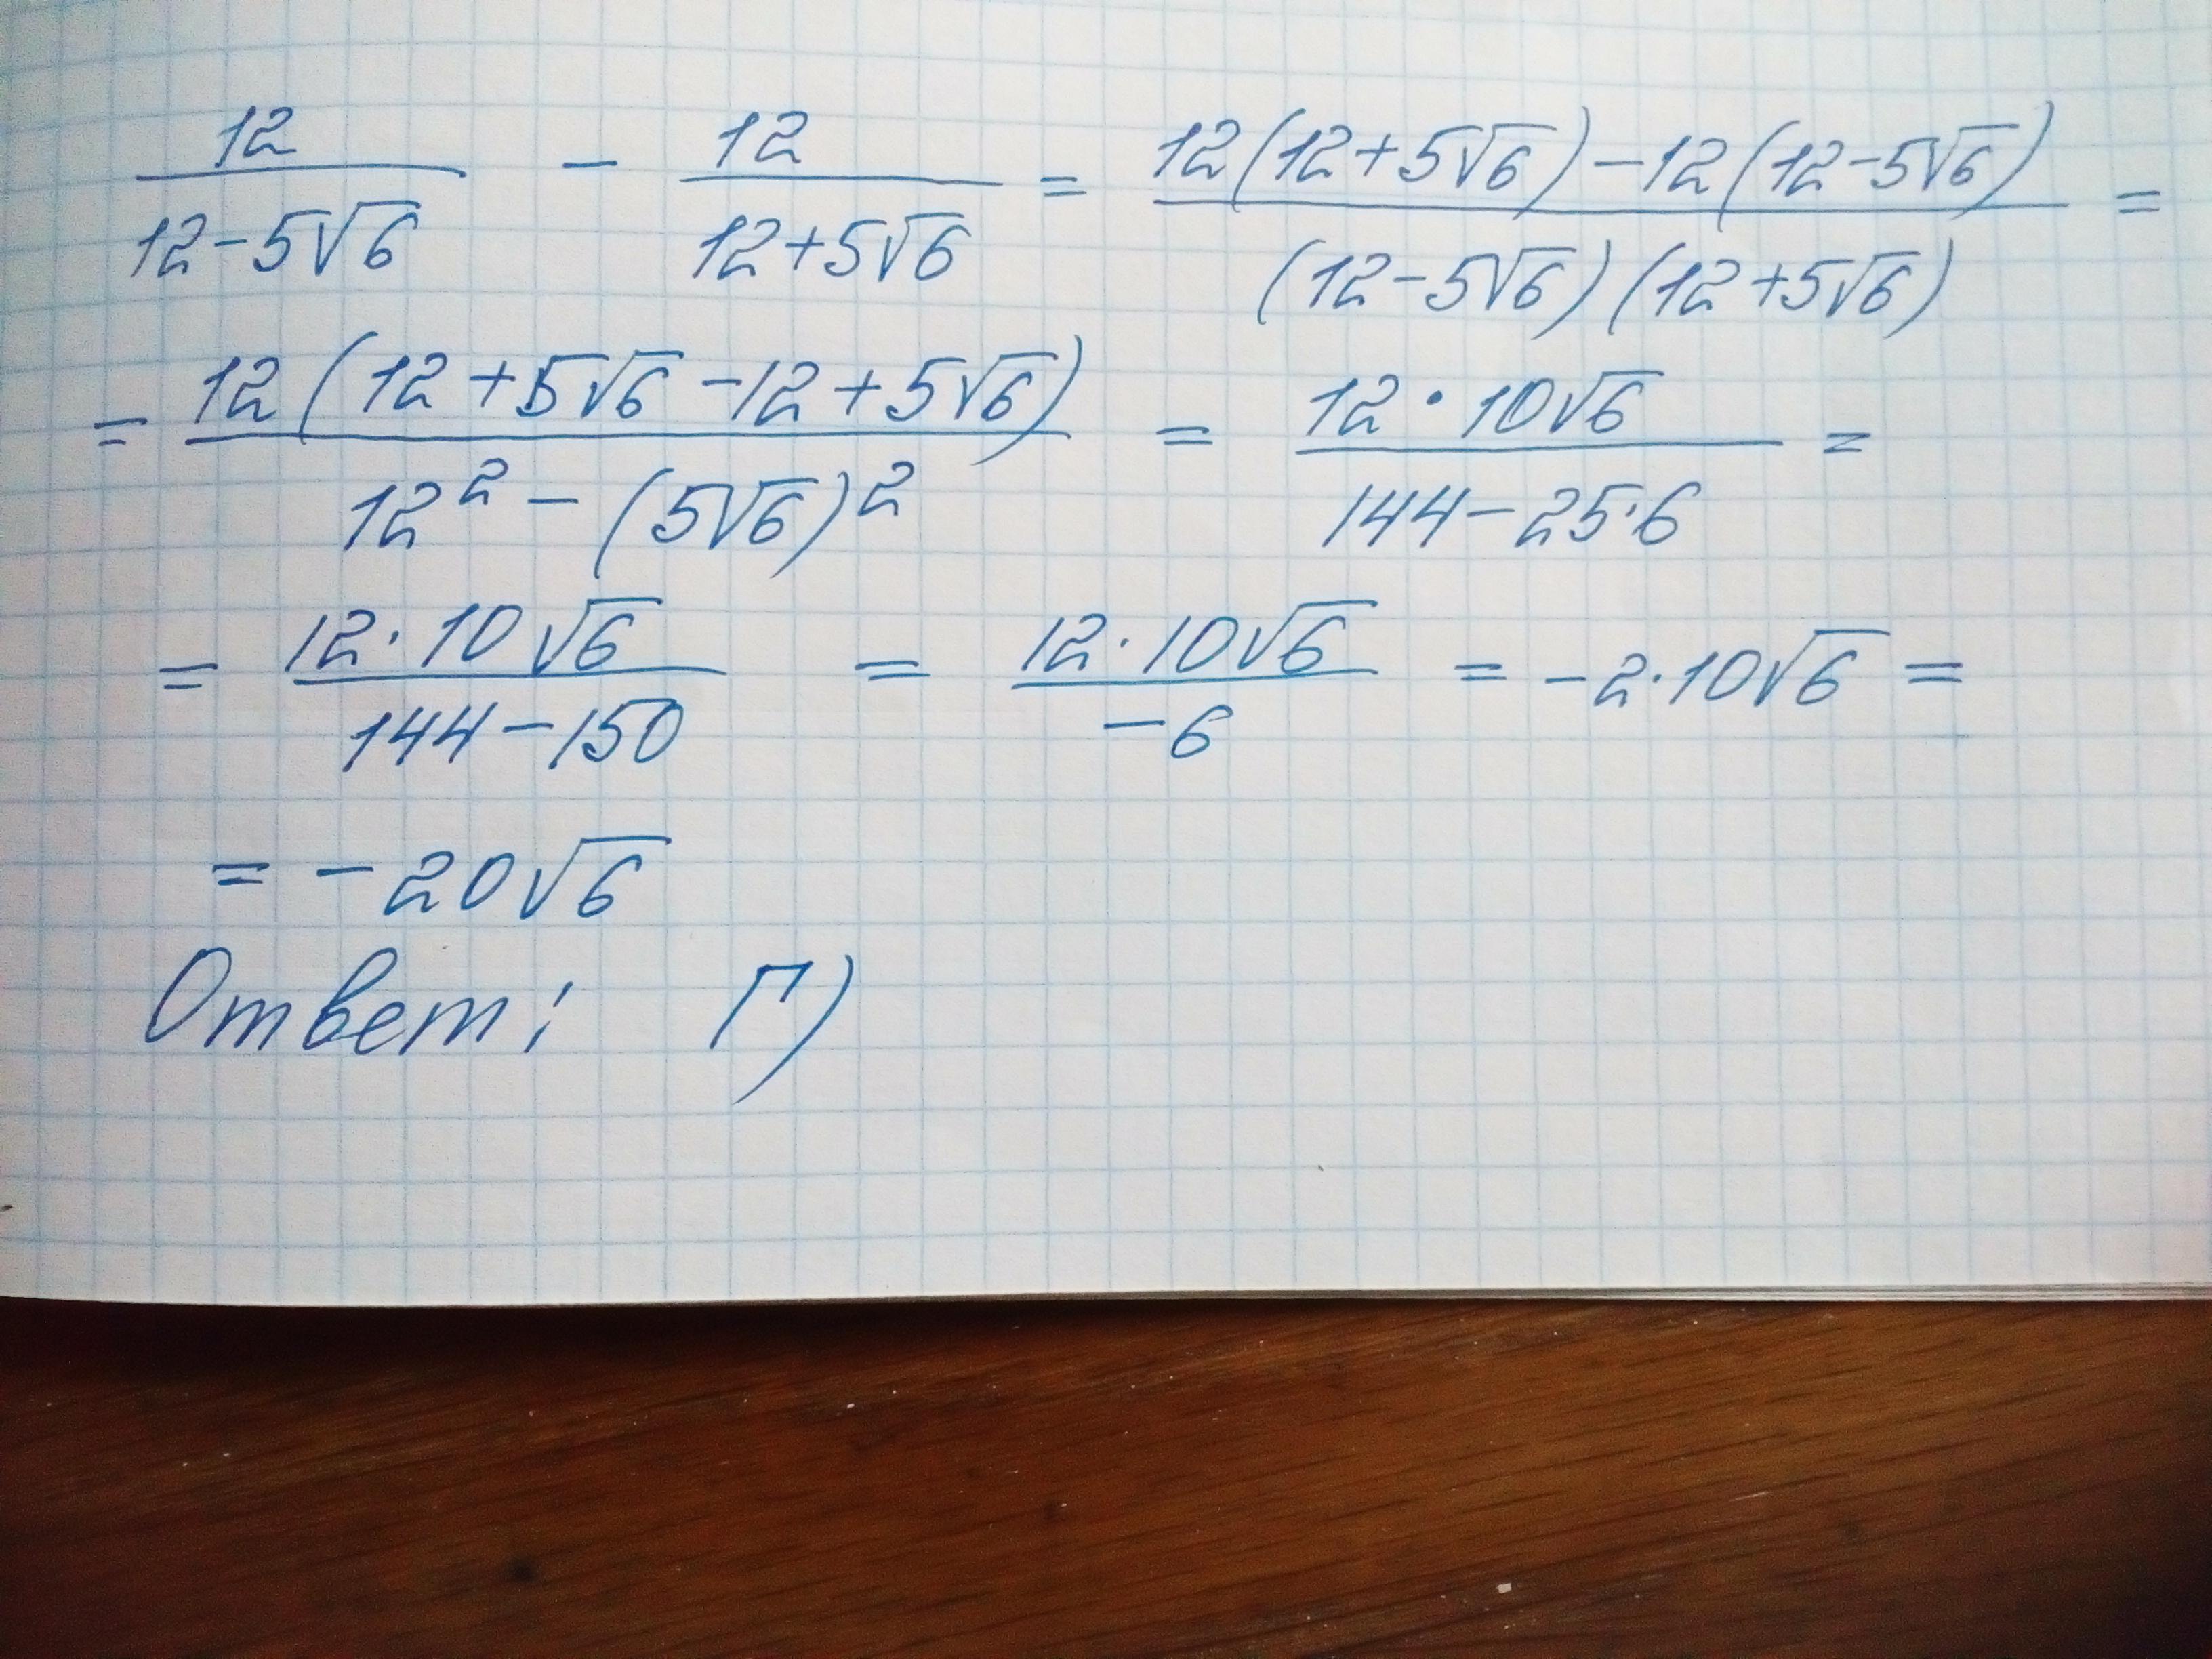 12/(12-5√6) - 12/(12+5√6) = (12(12+5√6)-12(12-5√6))/((12-5√6)(12+5√6)) =
= 12(12+5√6-12+5√6)/(12²-(5√6)²) = (12·10√6)/(144-25·6) =
= (12·10√6)/(144-150) = (12·10√6)/(-6) = -2·10√6 =
= -20√6
Ответ: Г)